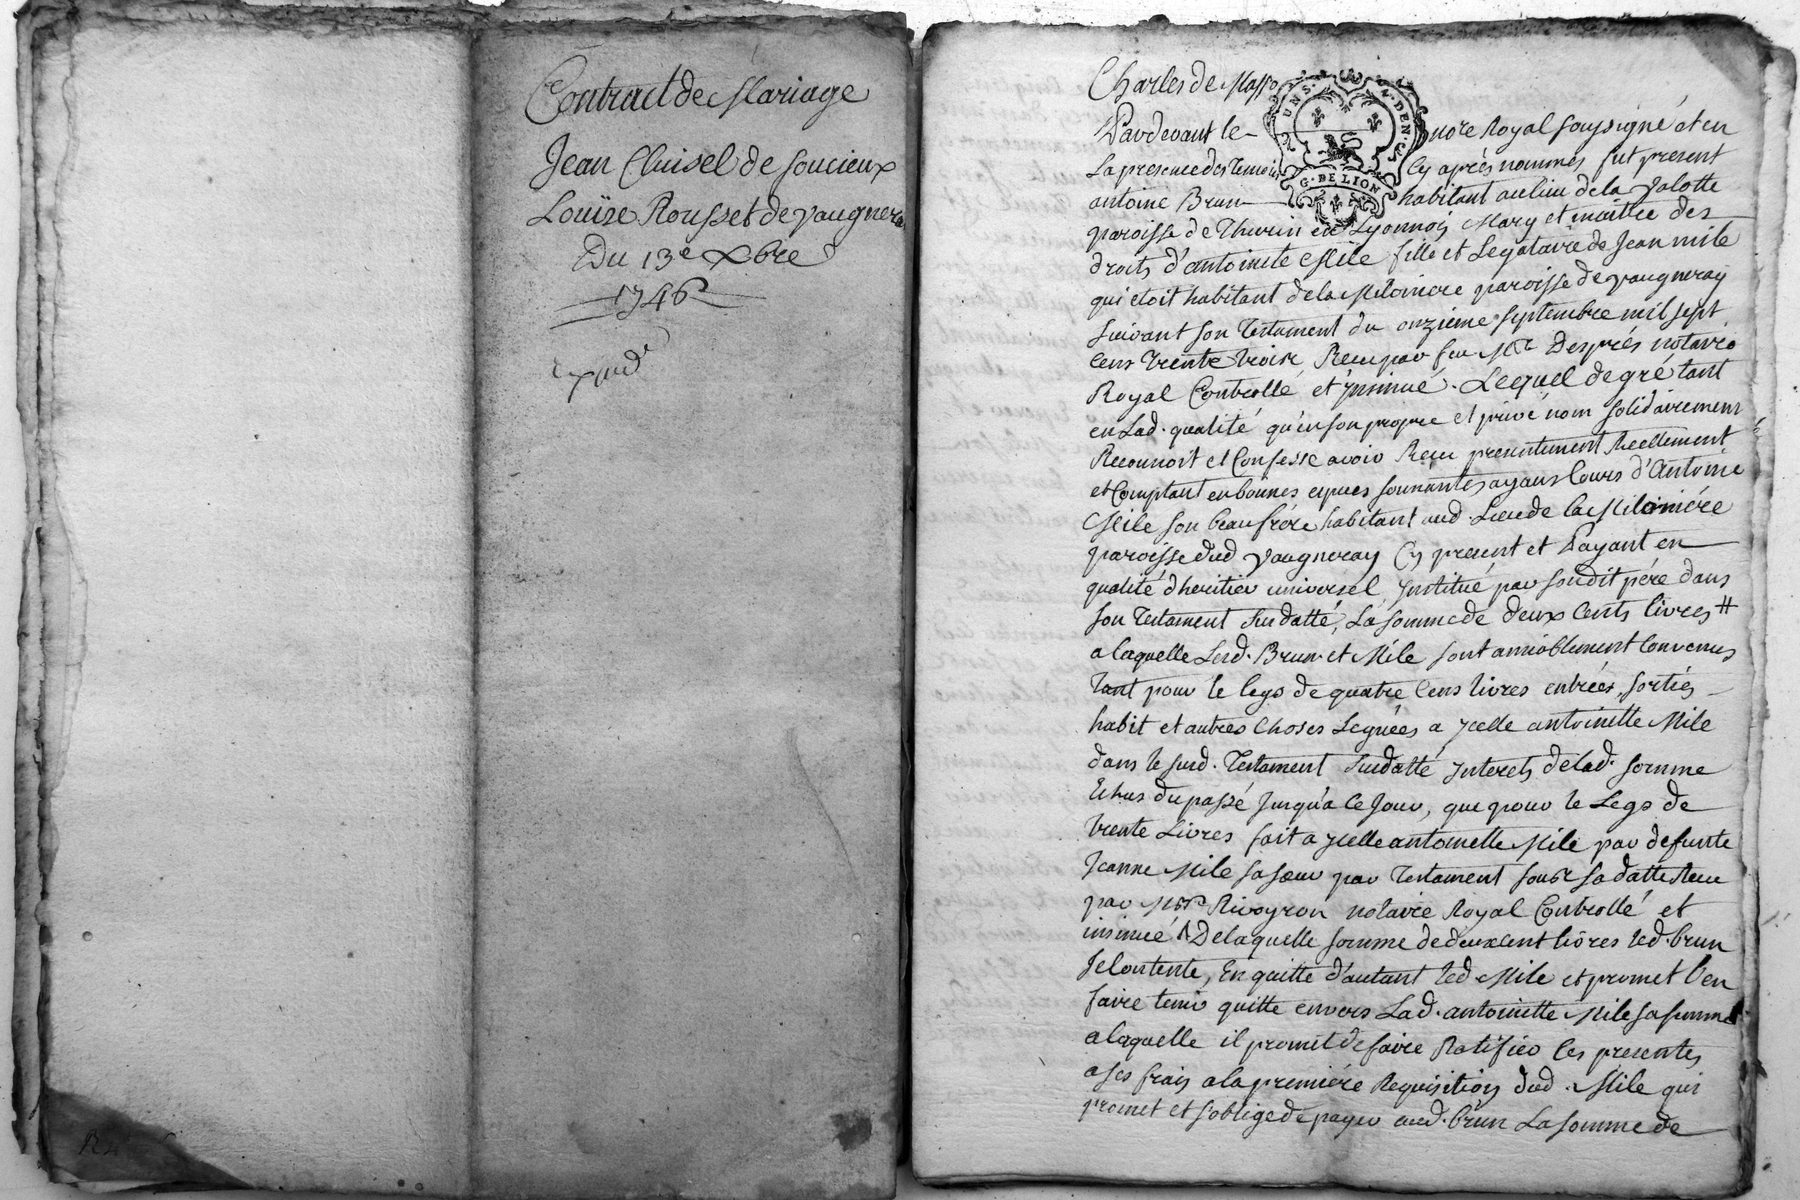 Contract de Mariage
Jean Cluisel de Soucieux
Louïse Rousset de Vaugneray
Du 13e Xbre
1746
expédé
Charles de Masso
UNS. N. DEN. 
G. DE LION
Pardevant le nore Royal soussigné et en
La presence des temoins Cy après nommés fut present
antoine Brun habitant au lieu de la Jalotte
paroisse de Thurin en Lyonnois Mary et maitre des
droits d'antoinette Mile fille et Legataire de Jean mile
qui etoit habitant de la Miloniere paroisse de vaugneray
suivant son Testament du onzieme septembre mil sept
cens trente trois Receu par feu Mre Després notaire
Royal Controllé et Jnsinué. Lequel de gré tant
en Lad. qualité qu'en son propre et privé nom solidairement
Reconnoit et Confesse avoir Receu presentement Reellement
et Comptant en bonnes especes sonnantes ayans Cours d'Antoine
Mile son beau frére habitant aud. Lieu de la Miloniére
paroisse dud vaugneray Cy present et Payant en
qualité d'heritier universel Jnstitué par son dit pére dans
son Testament susdatté, La somme de deux Cents livres #
a laquelle Lesd. Brun et Mile sont amiablement Convenus
tant pour le legs de quatre Cens livres entrées, sorties
habit et autres Choses Leguées a Jcelle antoinette Mile
dans le susd. Testament susdatté Jnterets de lad. somme
Echus du passé Jusqu'a Ce Jour, que pour le Legs de
trente Livres fait a Jcelle antoinette Mile par defunte
Jeanne Mile sa sœur par Testament sous sa datte Receu
par Mre Rivoyron notaire Royal Controllé et
insinué De laquelle somme de deux cent livres led. brun
se Contente, En quitte d'autant led. Mile et promet l'en
faire tenir quitte envers Lad. antoinette Mile sa femme
a laquelle il promet de faire Ratifier les presentes
a ses frais a la premiére Requisition dud. Mile qui
promet et s'oblige de payer aud. brun La somme de